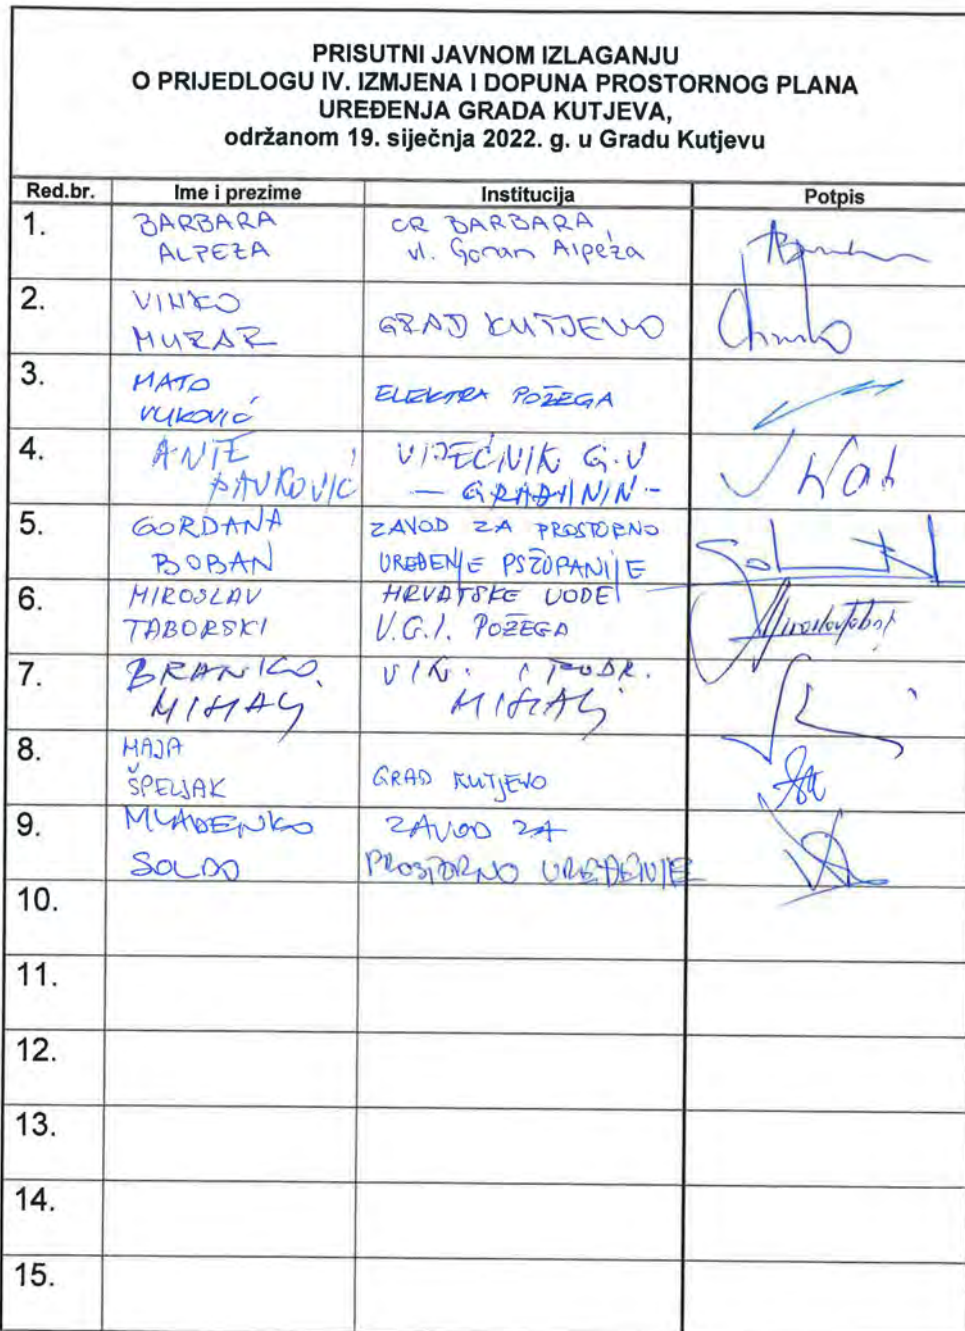 PRISUTNI JAVNOM IZLAGANJU
O PRIJEDLOGU IV. IZMJENA I DOPUNA PROSTORNOG PLANA
UREĐENJA GRADA KUTJEVA,
održanom 19. siječnja 2022. g. u Gradu Kutjevu
Red.br. Ime i prezime Institucija Potpis
1. BARBARA OR BARBARA,
ALPEZA vl. Goran Alpeza
2. VINKO
MURAR GRAD KUTJEVO
3. MATO
VUKOVIĆ ELEKTRA POŽEGA
4. ANTE VIJEĆNIK G.V
PAVKOVIĆ - GRAĐANIN -
5. GORDANA ZAVOD ZA PROSTORNO
BOBAN UREĐENJE PSŽUPANIJE
6. MIROSLAV HRVATSKE VODE
TABORSKI V.G.I. POŽEGA
7. BRANKO VIN. I PODR.
MIHALJ MIHALJ
8. MAJA
ŠPELJAK GRAD KUTJEVO
9. MLADENKO ZAVOD ZA
SOLDO PROSTORNO UREĐENJE
10.
11.
12.
13.
14.
15.